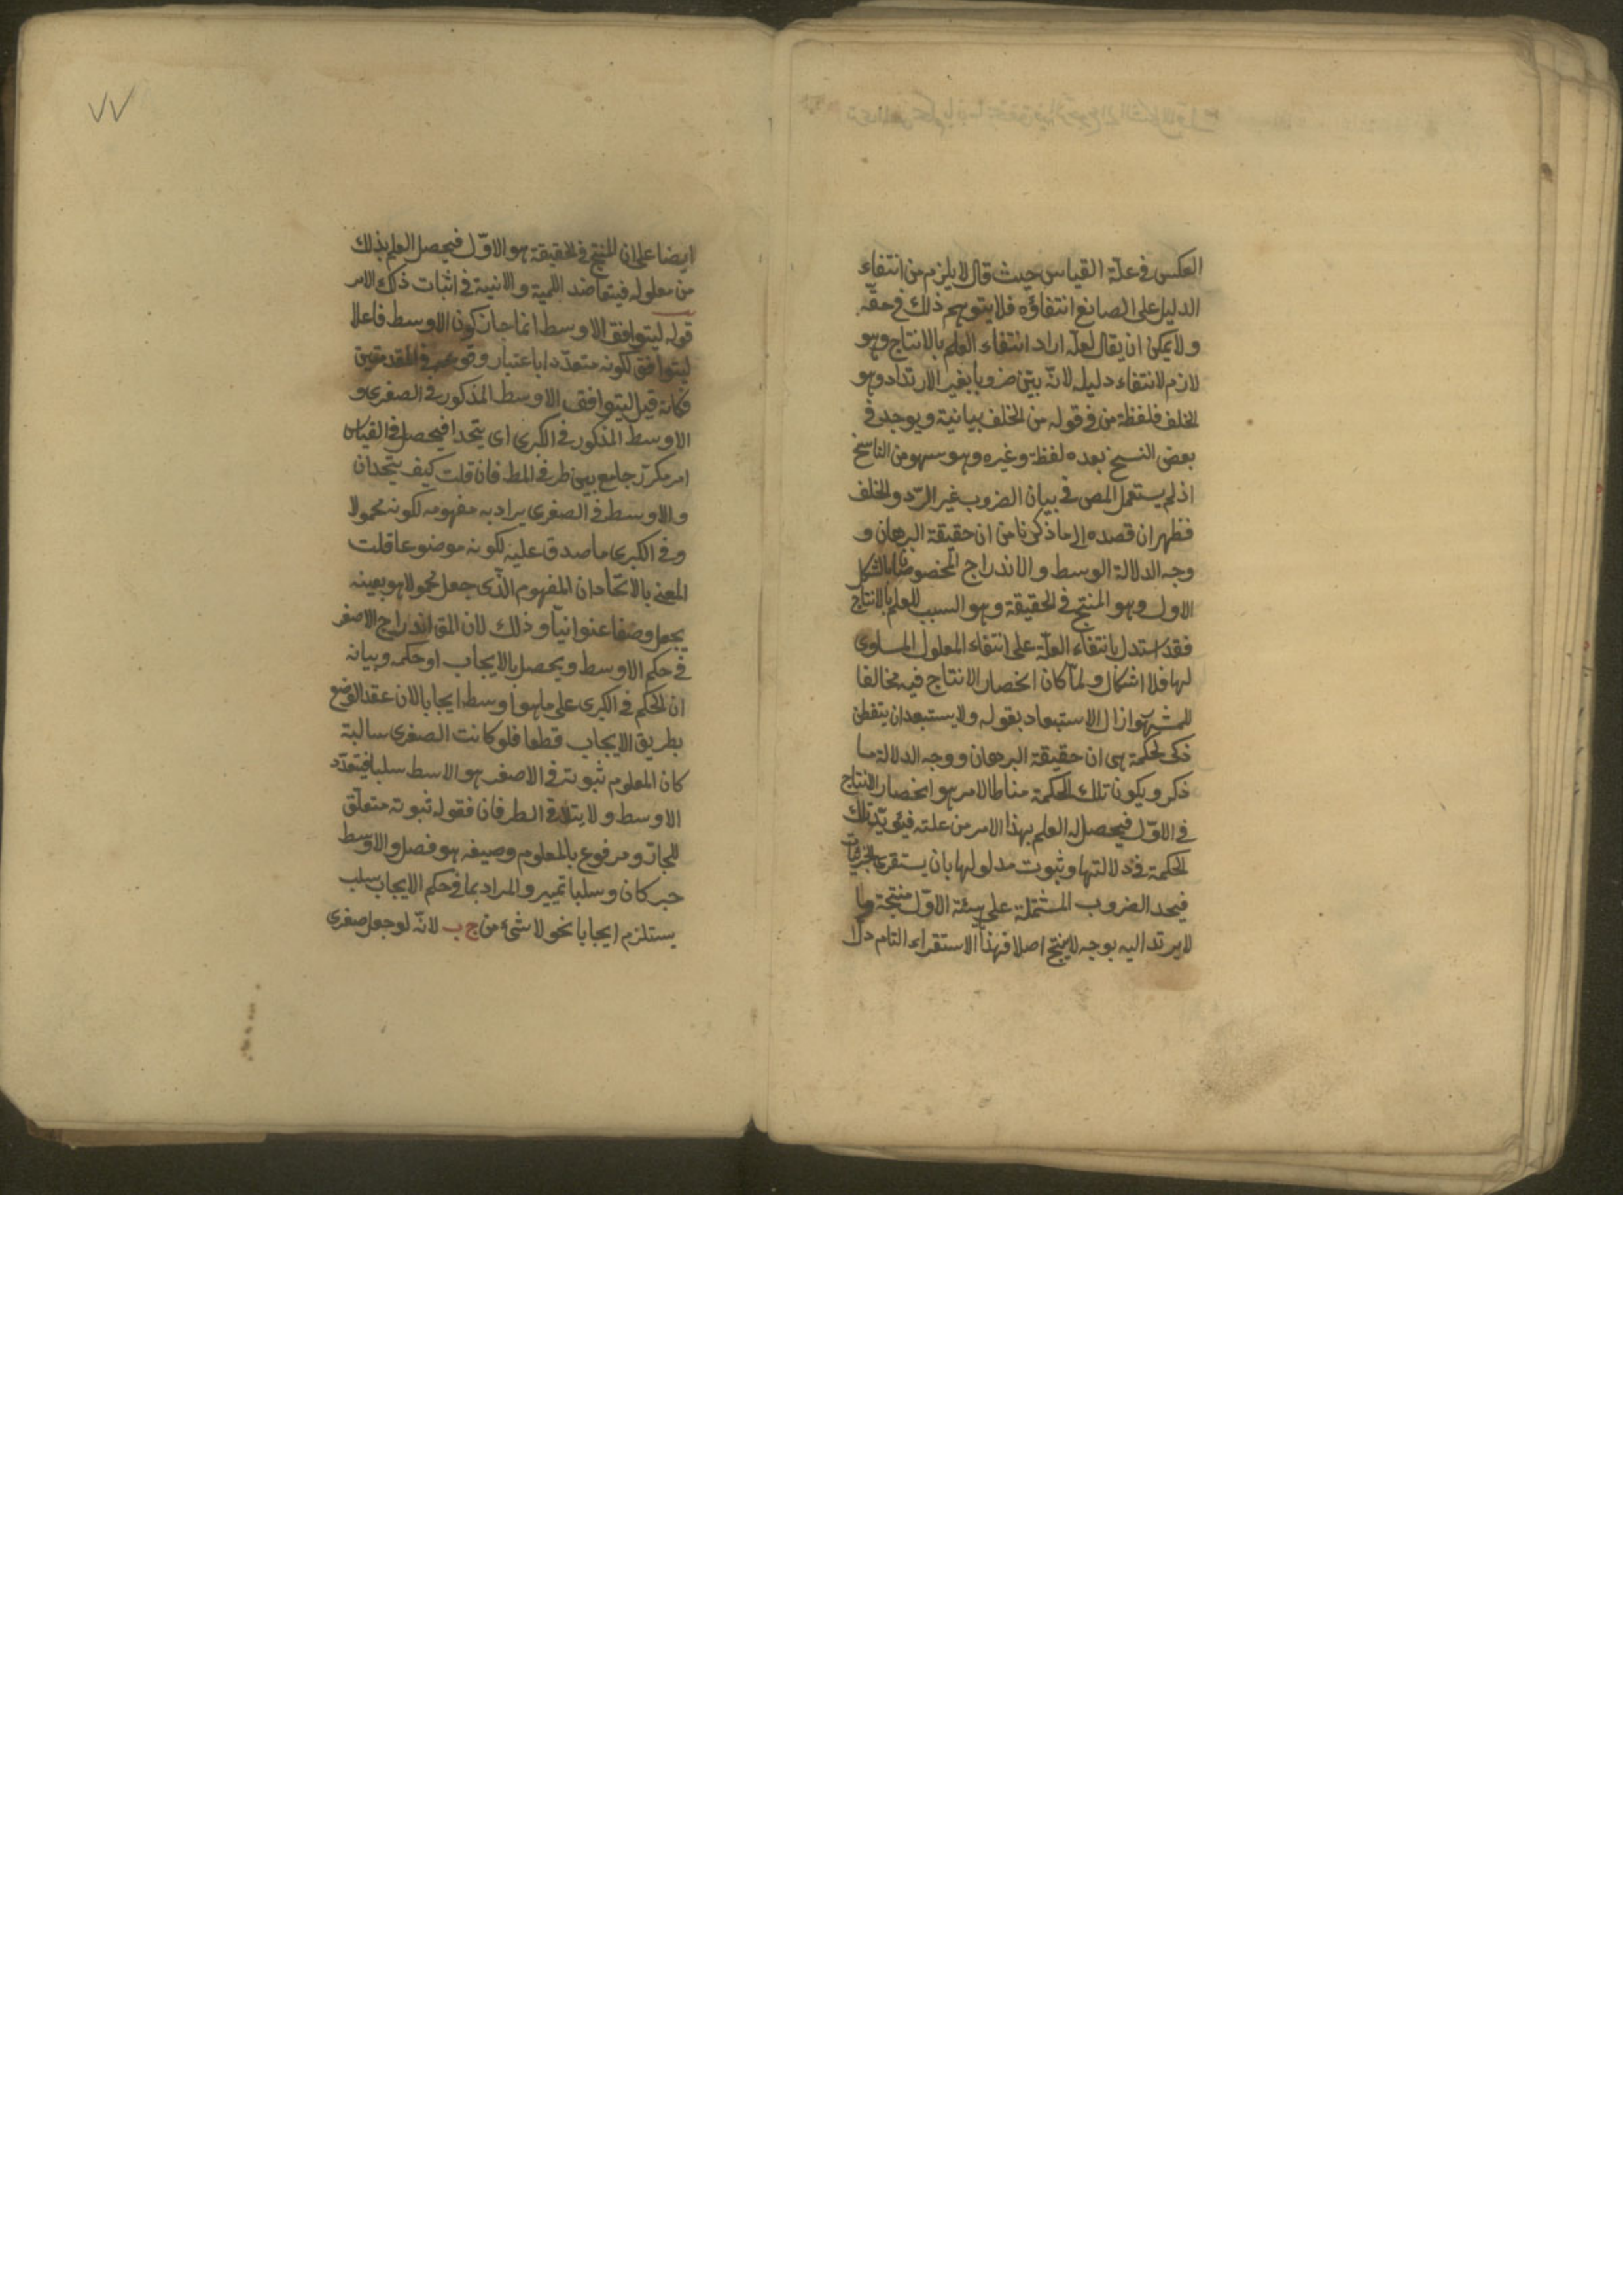 العكس في علة القياس حيث قال لا يلزم من انتفاء
الدليل على الصانع انتفاؤه فلا يتوهم ذلك في حقه
ولا يمكن ان يقال لعله اراد انتفاء العلم بالانتاج وهو
لازم لانتفاء دليله لانه بين ضروبا بغير الارتداد وهو
الخلف فلفظة من في قوله من الخلف بيانية ويوجد في
بعض النسخ بعده لفظة وغيره وهو سهو من الناسخ
اذ لم يستعمل المص في بيان الضروب غير الردّ والخلف
فظهر ان قصده الى ما ذكرنا من ان حقيقة البرهان و
وجه الدلالة الوسط والاندراج المخصوصان بالشكل
الاول وهو المنتج في الحقيقة وهو السبب للعلم بالانتاج
فقد استدل بانتفاء العلّة على انتفاء المعلول المساوى
لها فلا اشكال ولمّا كان انحصار الانتاج فيه مخالفا
للمشهور ازال الاستبعاد بقوله ولا يستبعد ان يتفطن
ذكى لحكمة هى ان حقيقة البرهان ووجه الدلالة ما
ذكر ويكون تلك الحكمة مناطا لامر هو انحصار الانتاج
في الاوّل فيحصل له العلم بهذا الامر من علته فيؤيّد تلك
الحكمة في دلالتها وثبوت مدلولها بان يستقرى الجزئيات
فيجد الضروب المشتملة على هيئة الاوّل منتجة وما
لا يرتد اليه بوجه لا ينتج اصلا فهذا الاستقراء التام دلّ
٧٧
ايضا على ان المنتج في الحقيقة هو الاوّل فيحصل العلم بذلك
من معلوله فيتعاضد اللمية والانية في اثبات ذلك الامر
قوله ليتوافق الاوسط انما جاز كون الاوسط فاعلا
ليتوافق لكونه متعدّدا باعتبار وقوعه في المقدمتين
فكانه قيل ليتوافق الاوسط المذكور في الصغرى و
الاوسط المذكور في الكبرى اى يتحدا فيحصل في القياس
امر مكرّر جامع بين طرفى المط فان قلت كيف يتحدان
والاوسط في الصغرى يراد به مفهومه لكونه محمولا
وفي الكبرى ما صدق عليه لكونه موضوعا قلت
المعنى بالاتحاد ان المفهوم الّذى جعل محمولا هو بعينه
يجعل وصفا عنوانيّا وذلك لان المق اندراج الاصغر
في حكم الاوسط ويحصل بالايجاب او حكمه وبيانه
ان الحكم في الكبرى على ما هو اوسط ايجابا لان عقد الوضع
بطريق الايجاب قطعا فلو كانت الصغرى سالبة
كان المعلوم ثبوته في الاصغر هو الاسط سلبا فيتعدّد
الاوسط ولا يتلاقى الطرفان فقوله ثبوته متعلّق
للجار ومرفوع بالمعلوم وصيغه هو فصل والاوسط
خبر كان وسلبا تمييز والمراد بما في حكم الايجاب سلب
يستلزم ايجابا نحو لا شئ من ج ب لانّه لو جعل صغرى